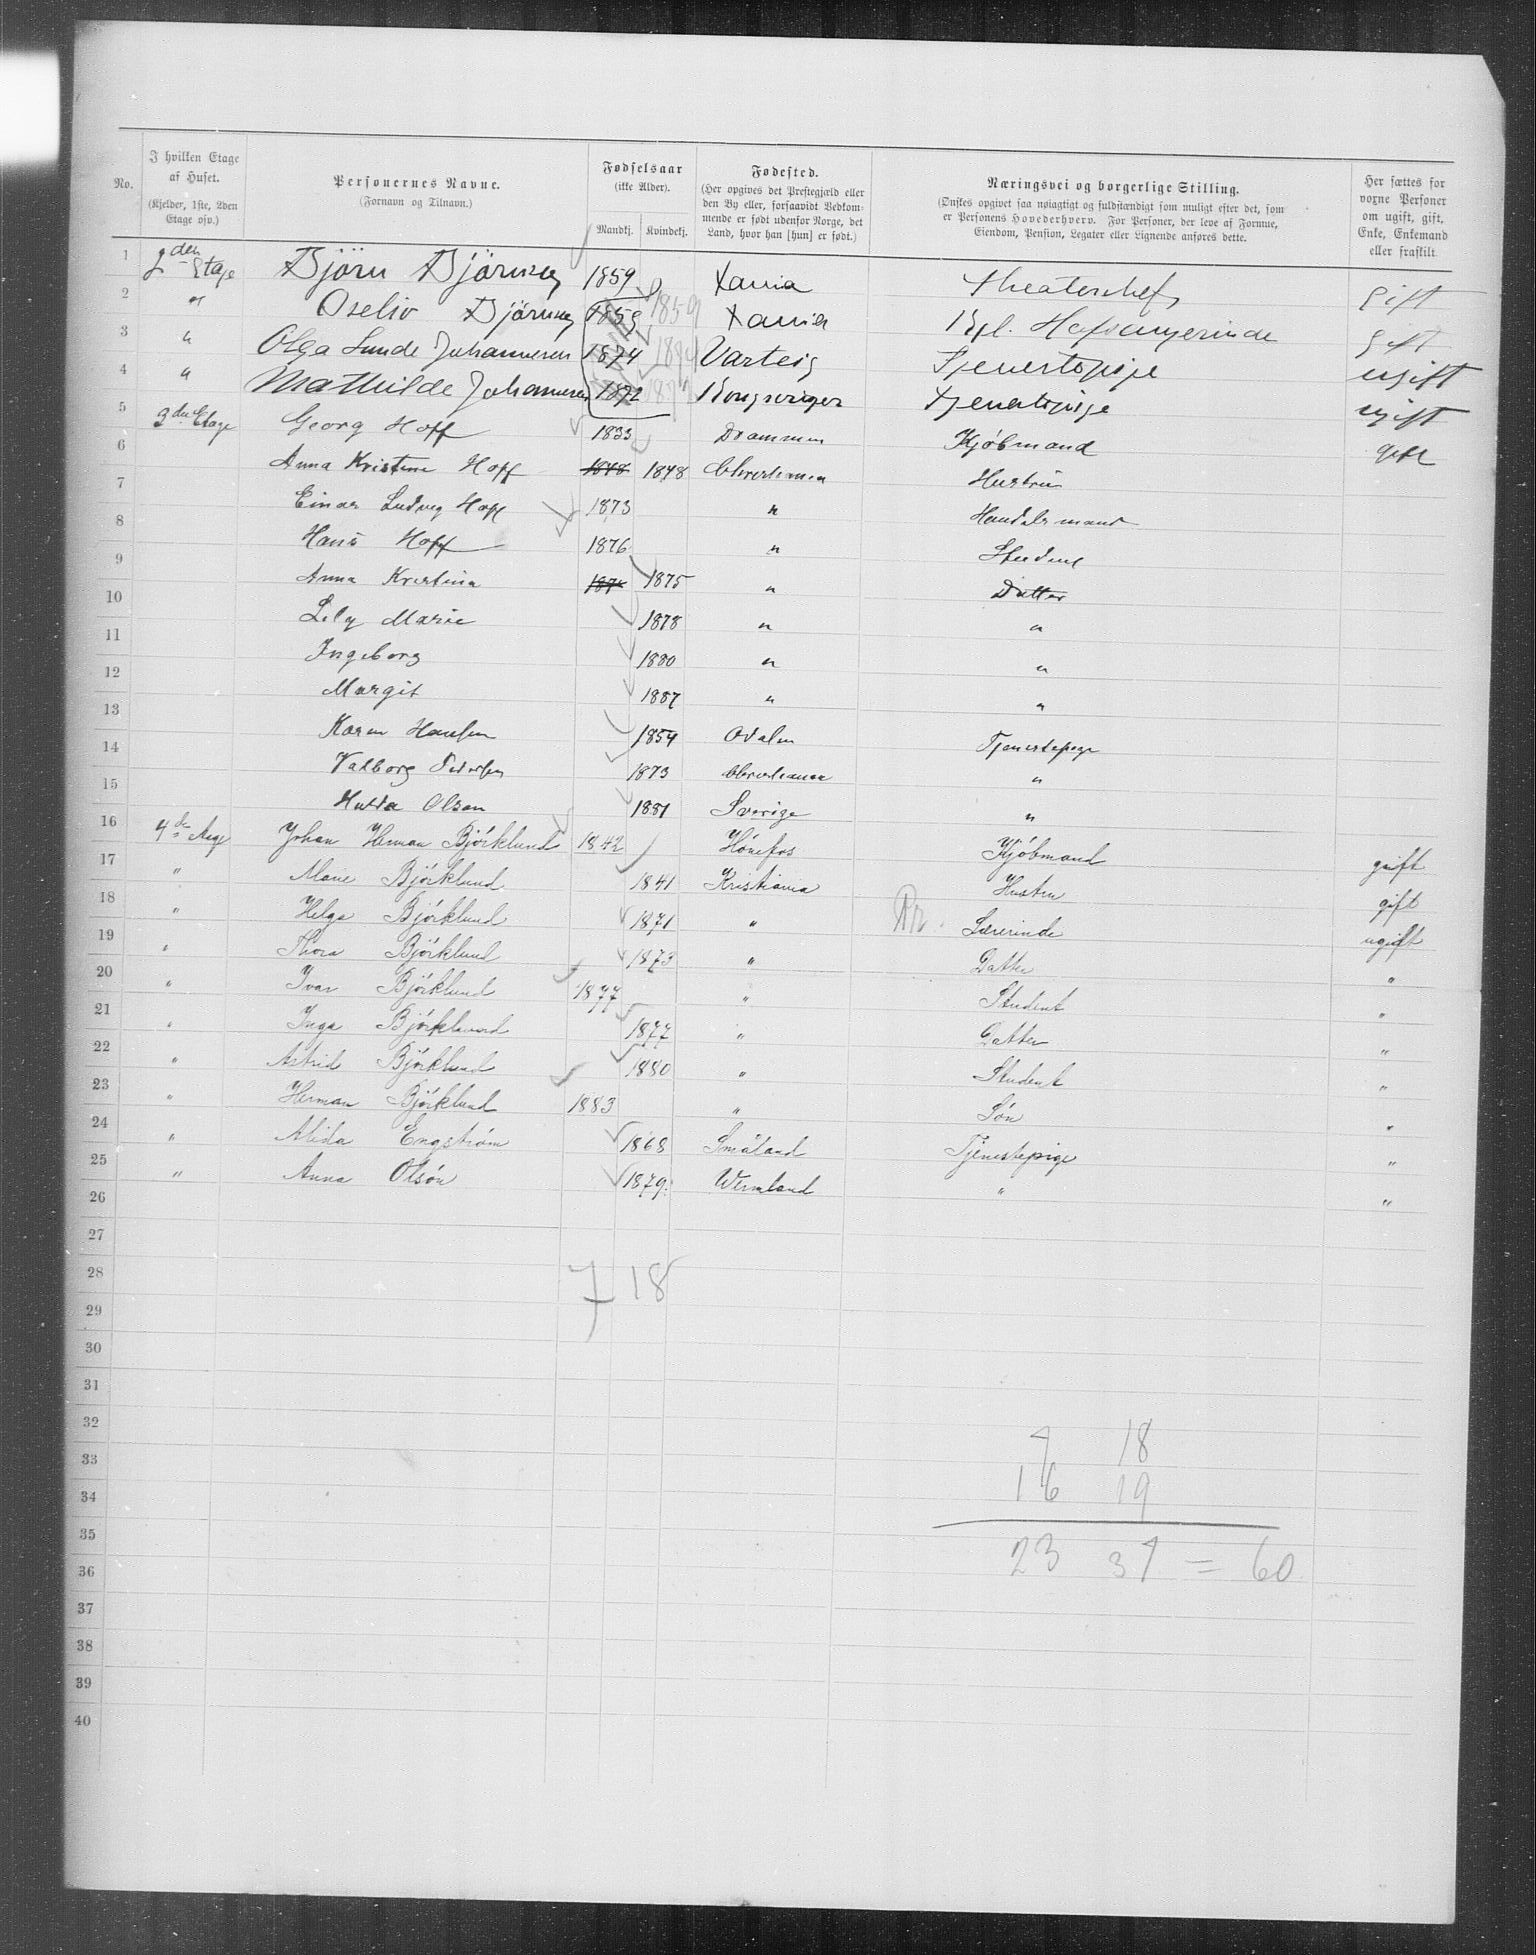 No. | I hvilken Etage af Huset. (Kjelder, 1ste, 2den Etage osv.) | Personernes Navne. (Fornavn og Tilnavn.) | Fødselsaar (ikke Alder). Mandkj. Kvindekj. | Fødested. (Her opgives det Prestegjæld eller den By eller, forsaavidt Vedkommende er født udenfor Norge, det Land, hvor han [hun] er født.) | Næringsvei og borgerlige Stilling. (Ønskes opgivet saa nøiagtigt og fuldstændigt som muligt efter det, som er Personens Hovederhverv. For Personer, der leve af Formue, Eiendom, Pension, Legater eller Lignende anføres dette. | Her sættes for voxne Personer om ugift, gift, Enke, Enkemand eller fraskilt.
1 2den Etage Björn Björnson 1859 Xania Theaterchef gift
2 " Björnson 1859 1859 Xania Kgl. Hofsangerinde gift
3 " Olga Lunde Johannesen 1874 1874 Varteig Tjenestepige ugift
4 " Mathilde Johannesen 1872 1872 Kongsvinger Tjenestepige ugift
5 3die Etage Georg Hoff 1833 Drammen Kjöbmand gift
6 Anna Kristine Hoff 1848 1848 Christiania Hustru
7 Einar Ludvig Hoff 1873 " Handelsmand
8 Hans Hoff 1876 " Student
9 Anna Kristina 1875 " Datter
10 Lily Marie 1878 " "
11 Ingeborg 1880 " "
12 Margit 1887 " "
13 Karen Hansen 1854 Odalen Tjenestepige
14 Valborg Pedersen 1873 Christiania "
15 Hulda Olsen 1881 Sverige "
16 4de Etage Johan Herman Björklund 1842 Hönefos Kjöbmand gift
17 " Marie Björklund 1841 Kristiania Hustru gift
18 " Helga Björklund 1871 " Pr. Lærerinde ugift
19 " Thora Björklund 1873 " Datter "
20 " Ivar Björklund 1877 " Student "
21 " Inga Björklund 1877 " Datter "
22 " Astrid Björklund 1880 " Student "
23 " Herman Björklund 1883 " Sön "
24 " Alida Engström 1868 Småland Tjenestepige "
25 " Anna Olsön 1879 Wermland " "
26
27
28 7 18
29
30
31
32
33 7 18
34 16 19
35
36 23 37 = 60
37
38
39
40